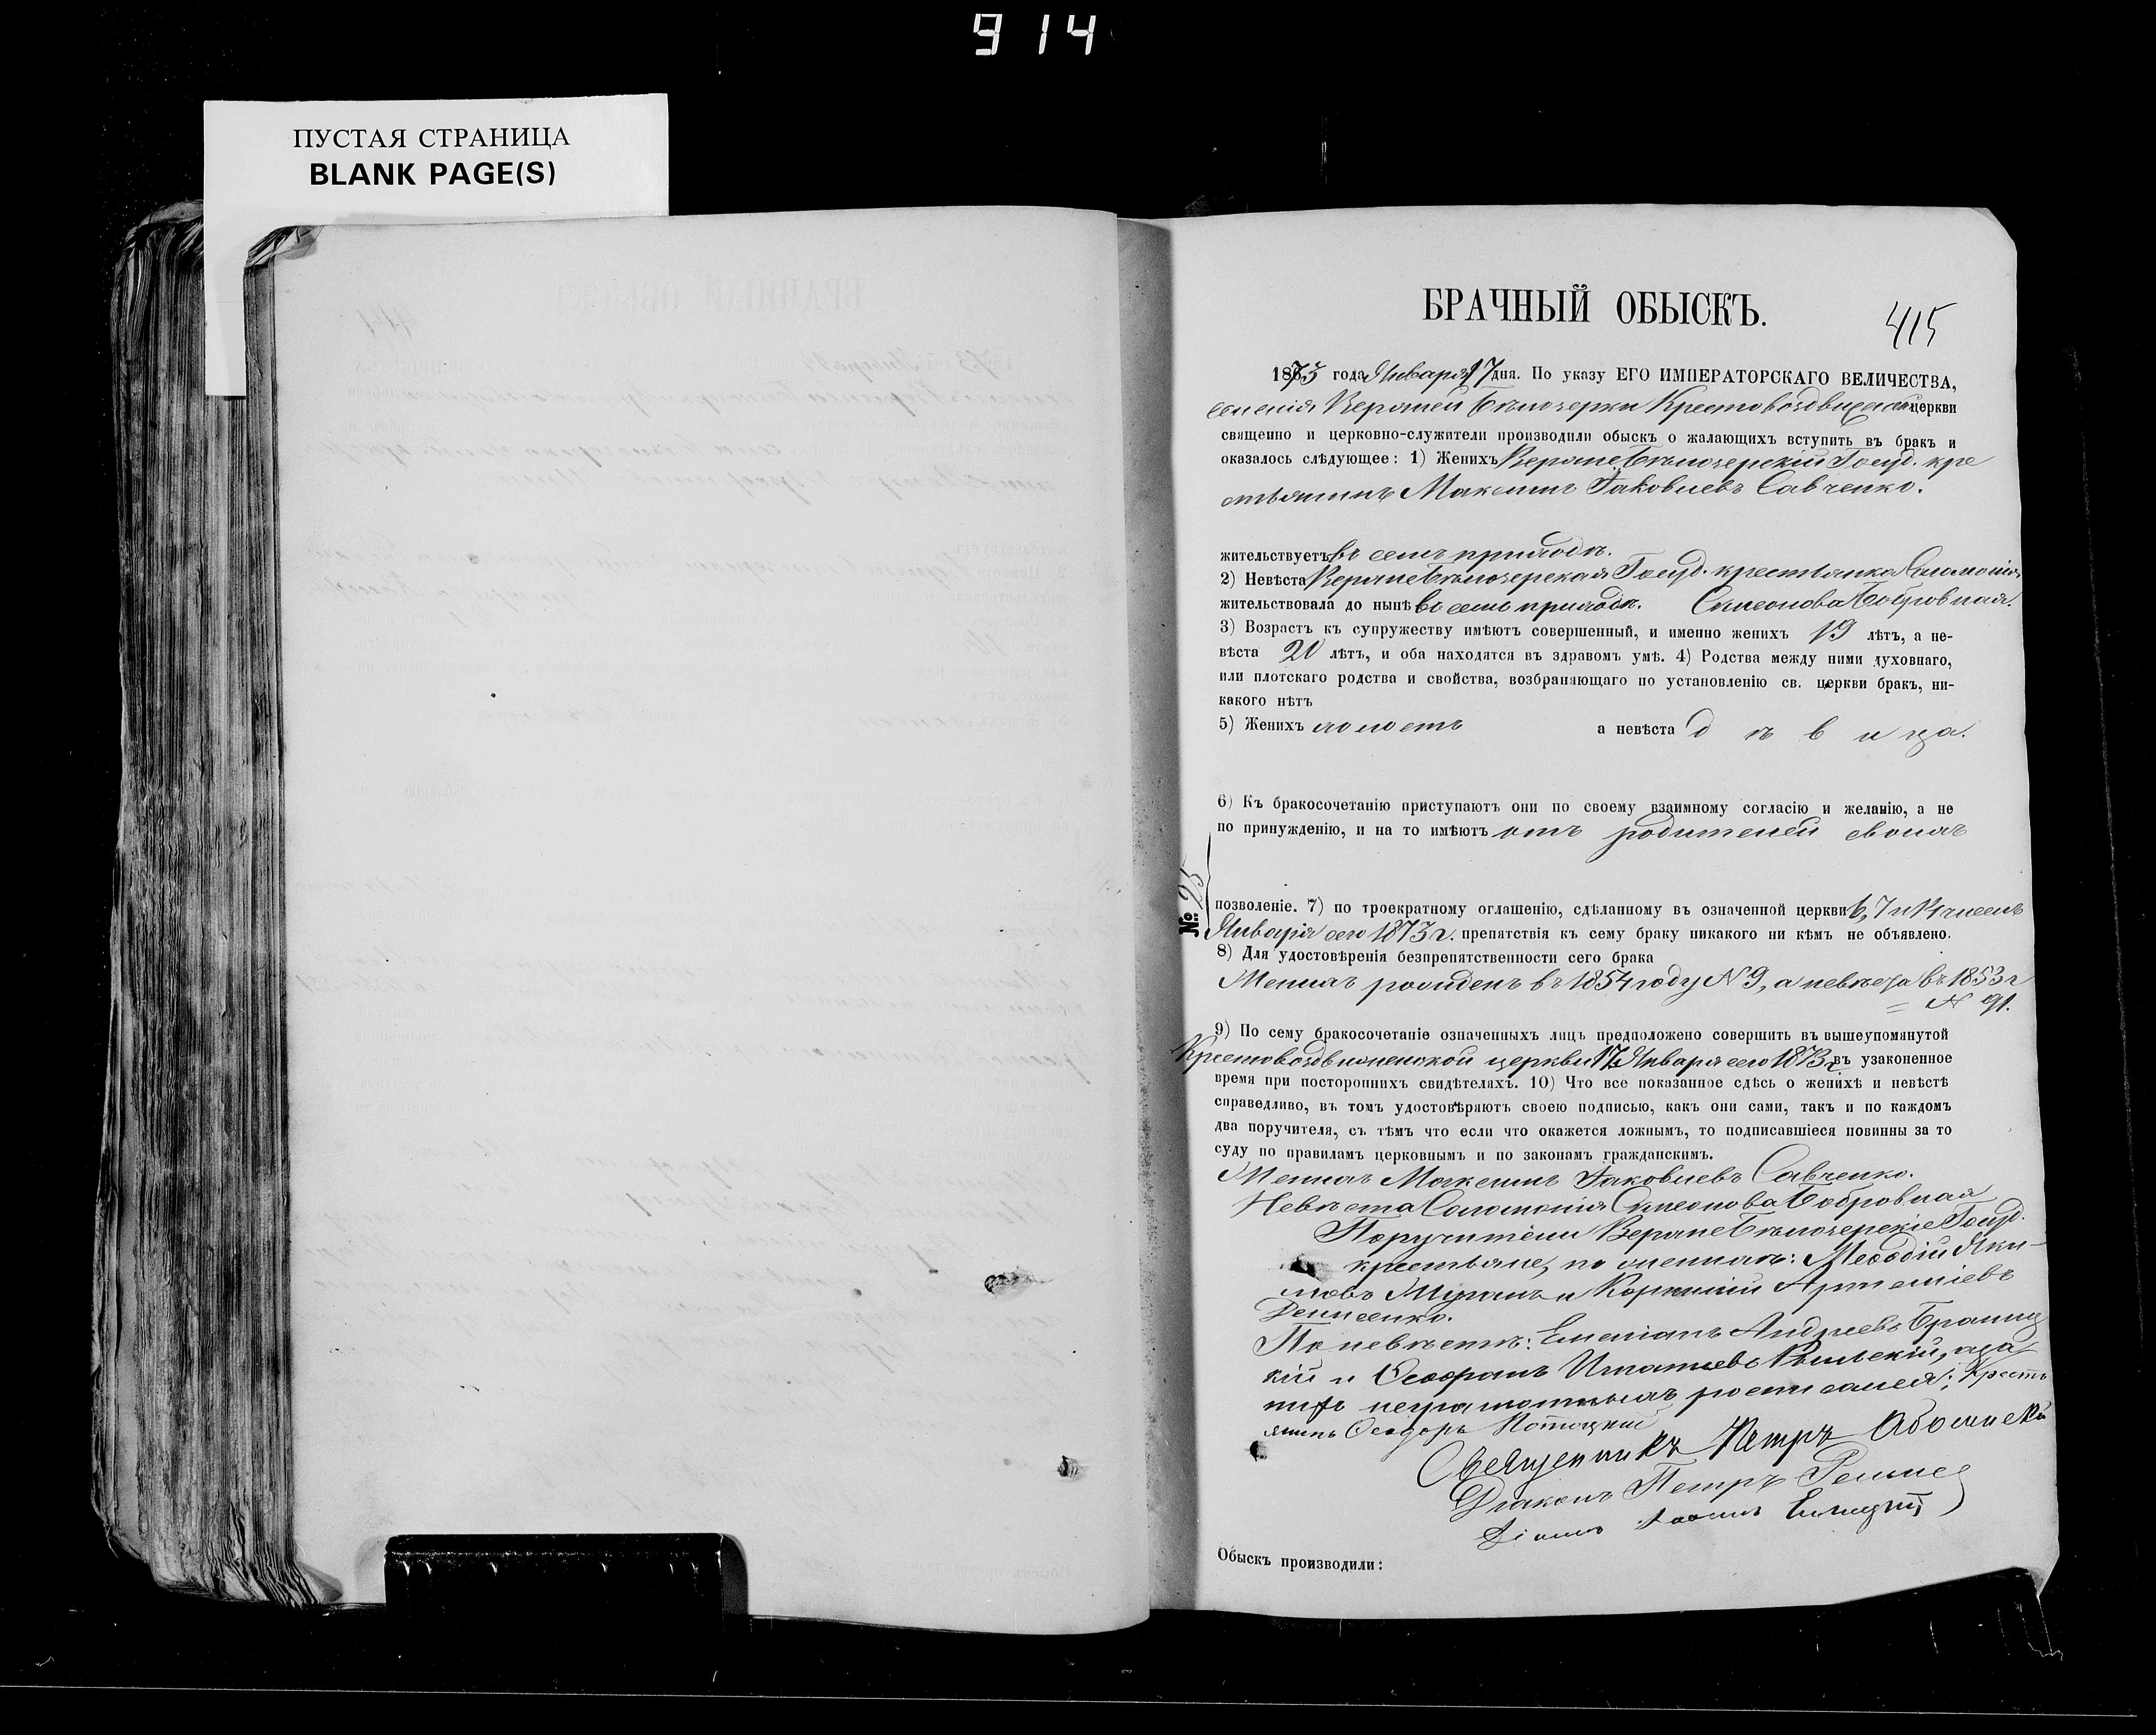 914
ПУСТАЯ СТРАНИЦА
BLANK PAGE(S)
БРАЧНЫЙ ОБЫСКЪ.
415
1873 года Января 17 дня. По указу ЕГО ИМПЕРАТОРСКАГО ВЕЛИЧЕСТВА,
селенія Верхней Бѣлозерки Крестовоздвиж церкви
священно и церковно-служители производили обыскъ о жалающихъ вступить въ бракъ и
оказалось слѣдующее: 1) Женихъ Верхнебѣлозерскій Госуд. кре
стьянинъ Максимъ Іаковлевъ Савченко.
жительствуетъ въ семъ приходѣ.
2) Невѣста Верхнебѣлозерская Госуд. крестьянка Саломонія
жительствовала до нынѣ въ семъ приходѣ. Симеонова Бобровная.
3) Возрастъ къ супружеству имѣютъ совершенный, и именно женихъ 19 лѣтъ, а не-
вѣста 20 лѣтъ, и оба находятся въ здравомъ умѣ. 4) Родства между ними духовнаго,
или плотскаго родства и свойства, возбраняющаго по установленію св. церкви бракъ, ни-
какого нѣтъ
5) Женихъ холостъ а невѣста дѣвица.
6) Къ бракосочетанію приступаютъ они по своему взаимному согласію и желанію, а не
по принужденію, и на то имѣютъ отъ родителей своихъ
№ 25
позволеніе. 7) по троекратному оглашенію, сдѣланному въ означенной церкви 6, 7 и 14 чиселъ
Января сего 1873 г. препятствія къ сему браку никакого ни кѣмъ не объявлено.
8) Для удостовѣренія безпрепятственности сего брака
Женихъ рожденъ въ 1854 году № 9, а невѣста въ 1853 г
= № 91.
9) По сему бракосочетаніе означенныхъ лицъ предположено совершить въ вышеупомянутой
Крестовоздвиженской церкви 17 Января сего 1873 г. въ узаконенное
время при постороннихъ свидѣтеляхъ. 10) Что все показанное сдѣсь о женихѣ и невѣстѣ
справедливо, въ томъ удостовѣряютъ своею подписью, какъ они сами, такъ и по каждомъ
два поручителя, съ тѣмъ что если что окажется ложнымъ, то подписавшіеся повинны за то
суду по правиламъ церковнымъ и по законамъ гражданскимъ.
Женихъ Максимъ Іаковлевъ Савченко.
Невѣста Саломонія Симеонова Бобровная
Поручители Верхнебѣлозерскіе Госуд.
крестьяне, по женихѣ: Меѳодій Яки-
мовъ и Корнилій Артеміевъ
Денисенко.
По невѣстѣ: Емеліанъ Андреевъ
кій и Ѳеофанъ Игнатіевъ а за
нихъ неграмотныхъ росписался: Кресть
янинъ Ѳеодоръ
Священникъ Петръ
Діаконъ Петръ
Іоаннъ
Обыскъ производили: